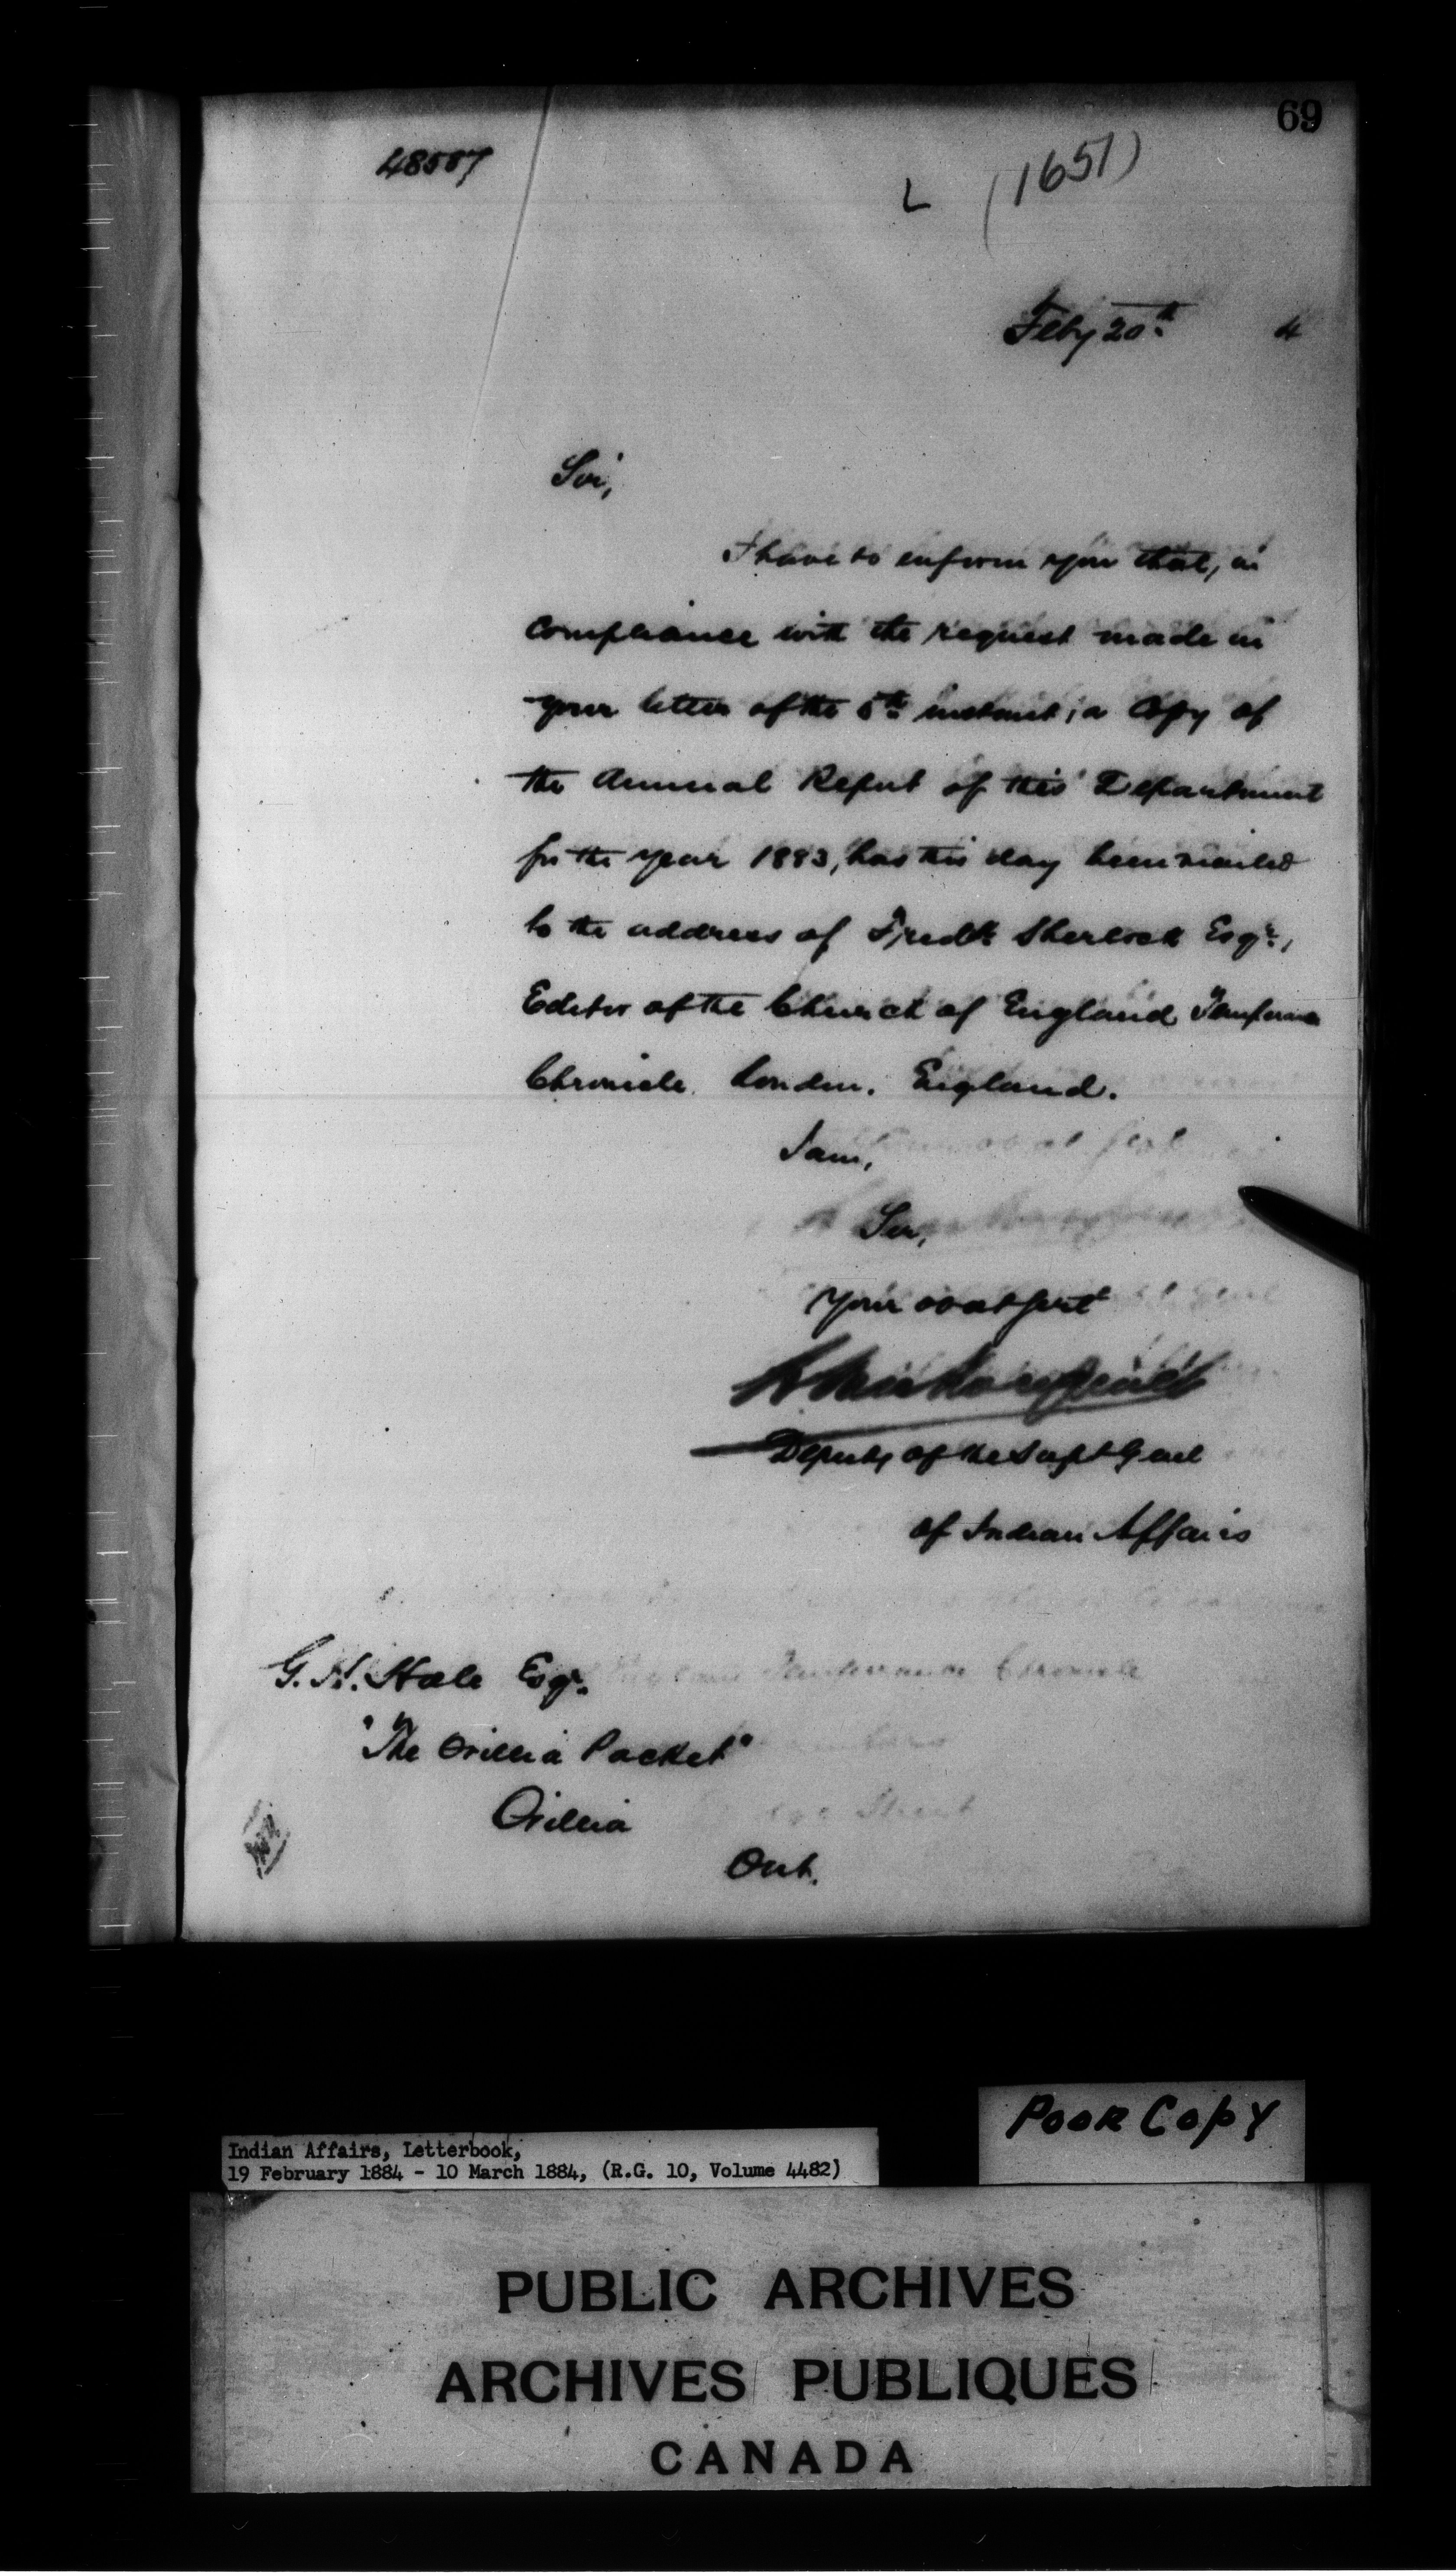 69
48587
L (1651)
Feby 20th 4
Sir,
I have to inform you that, in
compliance with the request made in
your letter of the 5th instant, a Copy of
the Annual Report of this Department
for the year 1883, has this day been mailed
to the address of Fredk Sherlock Esqr.,
Editor of the Church of England Temperance
Chronicle. London. England.
I am,
Sir,
Your obdt servt
L. Vankoughnet
Deputy of the Supt Genl
of Indian Affairs
G. H. Hale Esqr.
"The Orillia Packet"
Orillia
Ont.
POOR COPY
Indian Affairs, Letterbook,
19 February 1884 - 10 March 1884, (R.G. 10, Volume 4482)
PUBLIC ARCHIVES
ARCHIVES PUBLIQUES
CANADA